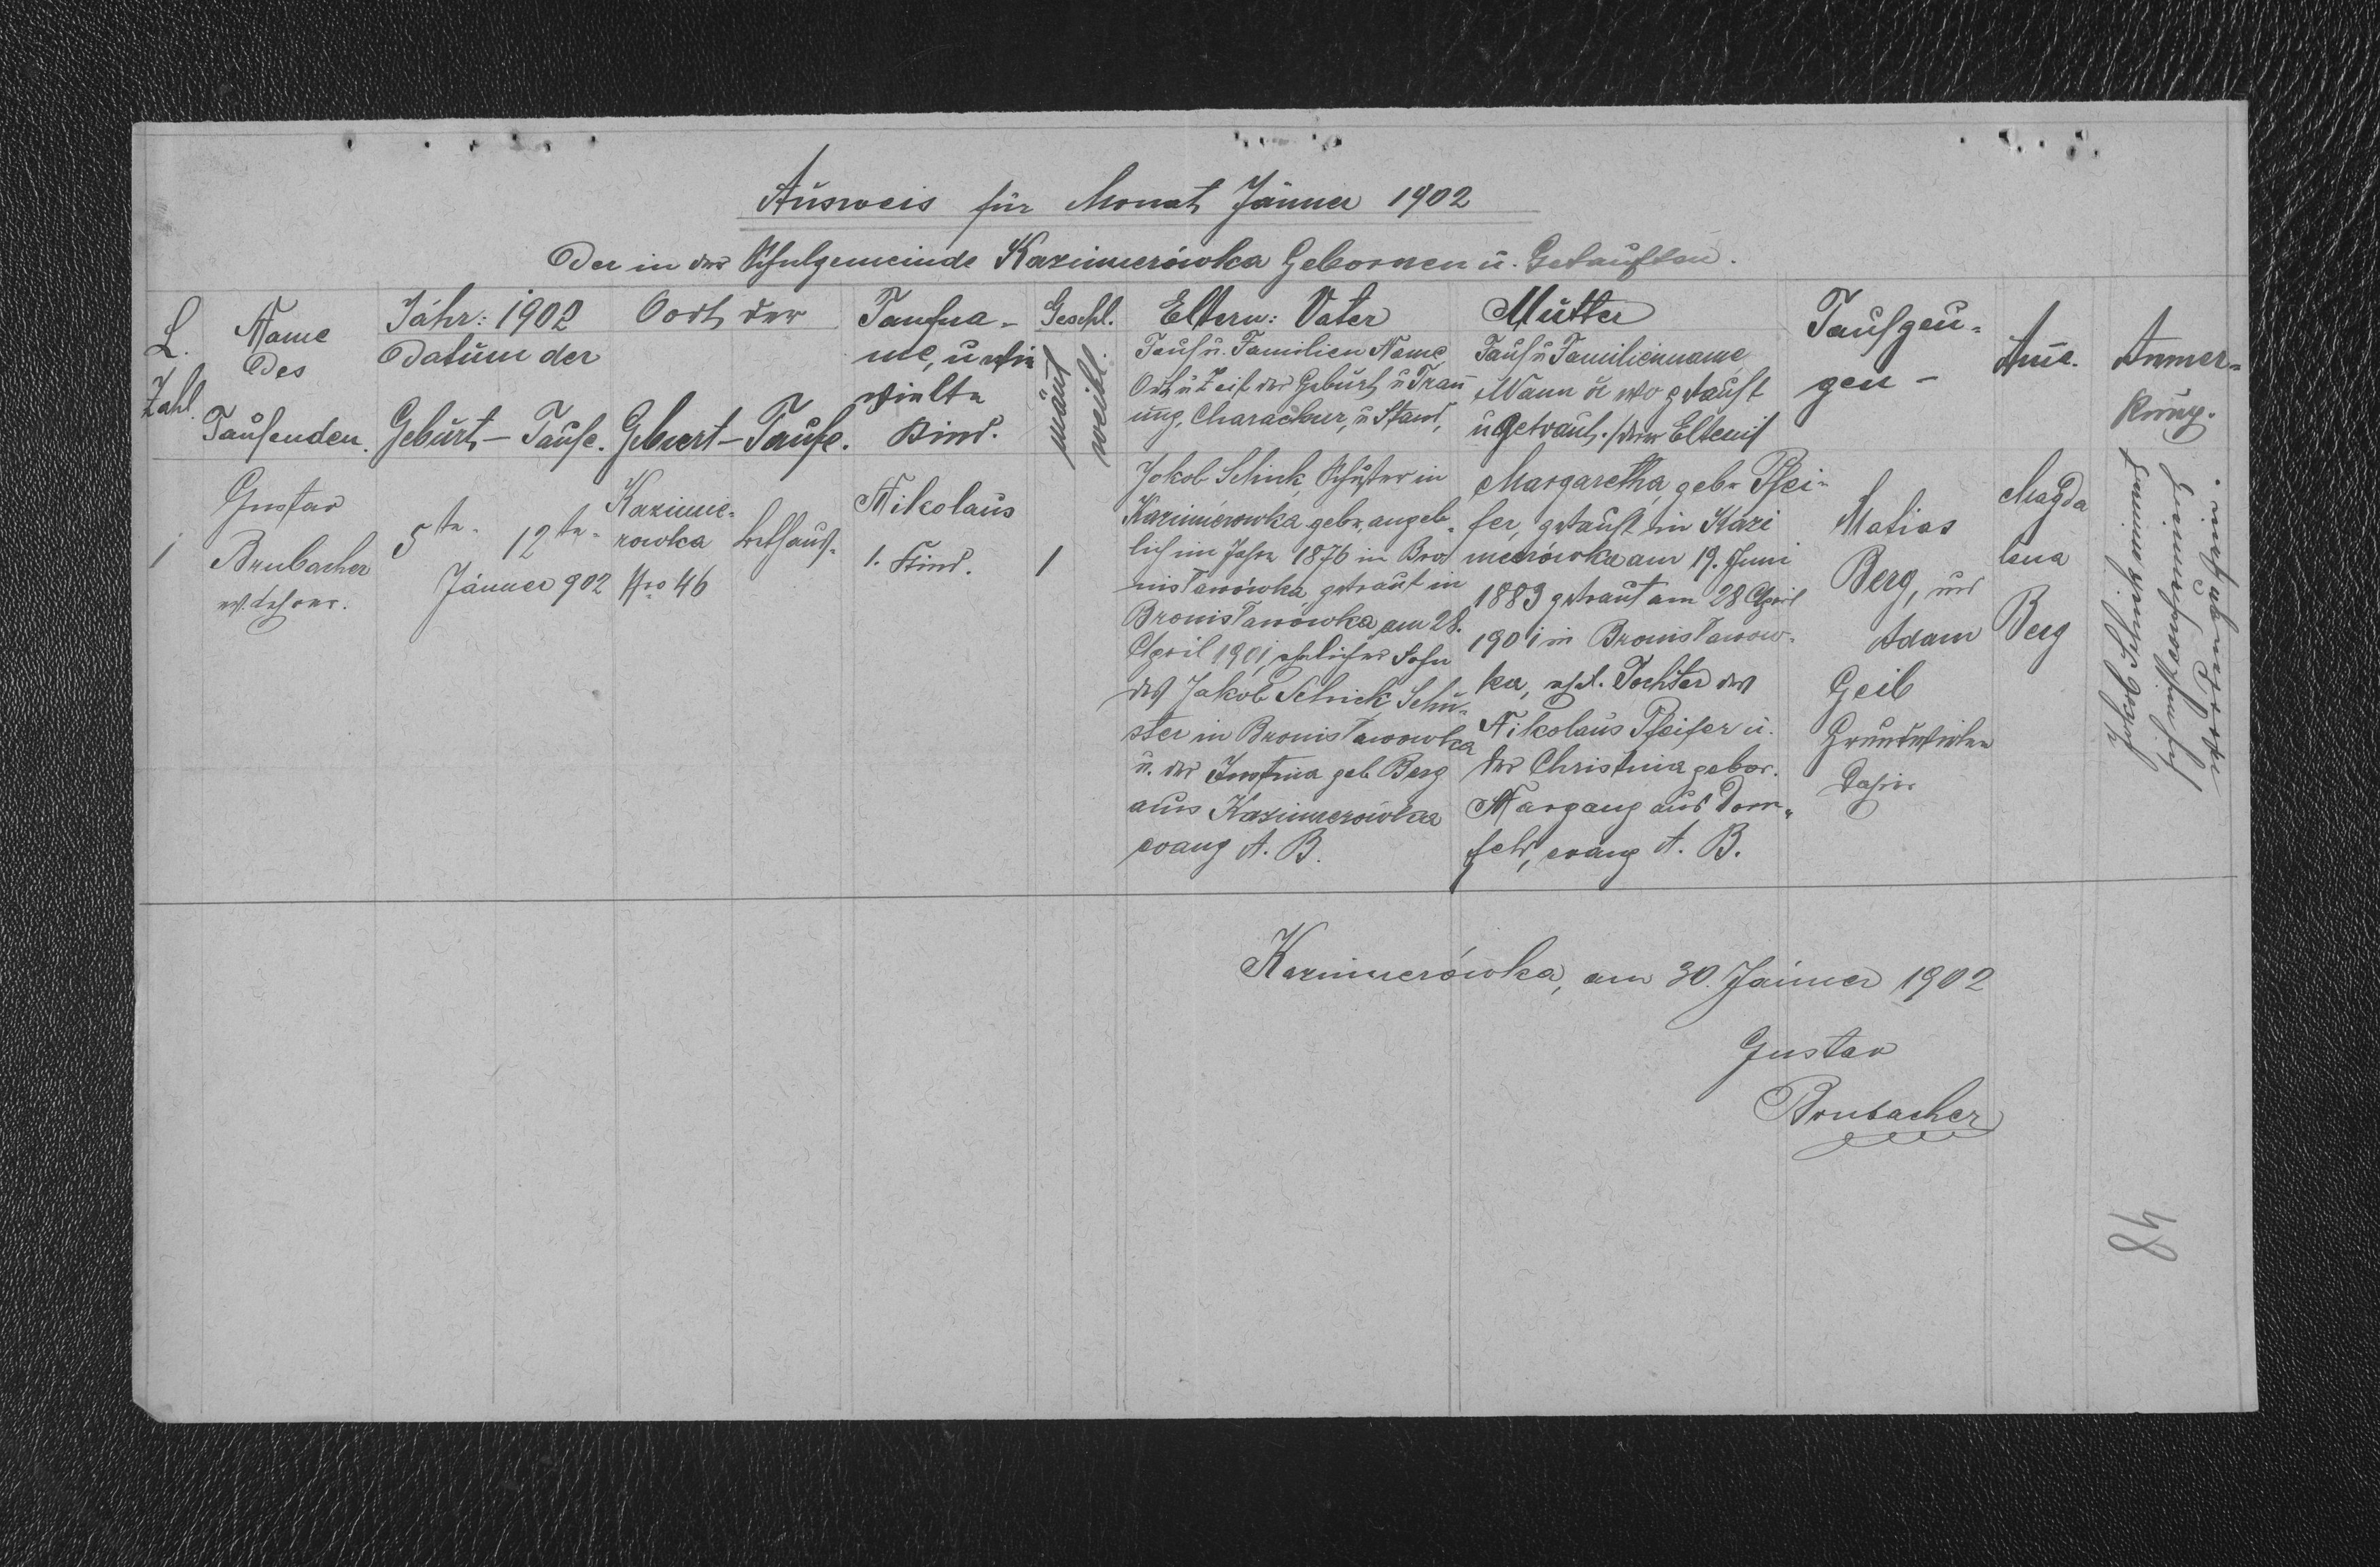 Ausweis für Monat Jänner 1902
Der in der Schulgemeinde Kazimierówka Gebornen u. Getauften.
L. Zahl.
Name
des
Taufenden.
Jahr: 1902
Datum der
Geburt – Taufe.
Oort der
Geburt – Taufe.
Taufna-
me, u wie
vielte
Kind.
Geschl.
männl
weibl.
Eltern: Vater
Tauf u. Familien Name,
Ort u Zeit der Geburt, u Trau
ung, Charackter, u Stand,
Mutter
Tauf u Familienname
Wann u wo getauft
u getraut. / deren Eltern /
Taufzeu-
gen –
Ame.
Anmer-
kung.
1
Gustav
Brubacher
ev. Lehrer.
5te. 12te.
Jänner 902
Kazimie-
rowka
Nro 46
Bethaus.
Nikolaus
1. Kind.
1
Jokob Schick, Schuster in
Kazimierowka, gebr. angeb-
lich im Jahre 1876 in Bro
nisławówka, getraut in
Bronisławówka am 28.
April 1901, ehelicher Sohn
des Jakob Schick Schu-
ster in Bronisławowka
u. der Justina geb. Berg
aus Kazimierówka
evang A. B.
Margaretha, gebr. Pfei-
fer, getauft in Kazi
mierówka am 19. Juni
1883 getraut am 28 April
1901 in Bronisławow-
ka, ehel. Tochter des
Nikolaus Pfeifer u.
der Christina gebor.
Margang aus Dorn-
feld, evang A. B.
Matias
Berg, und
Adam
Geib
Grundwirten
Dahir.
Magda
lena
Berg
Kazimierówka, am 30. Jänner 1902
Gustav
Brubacher
48